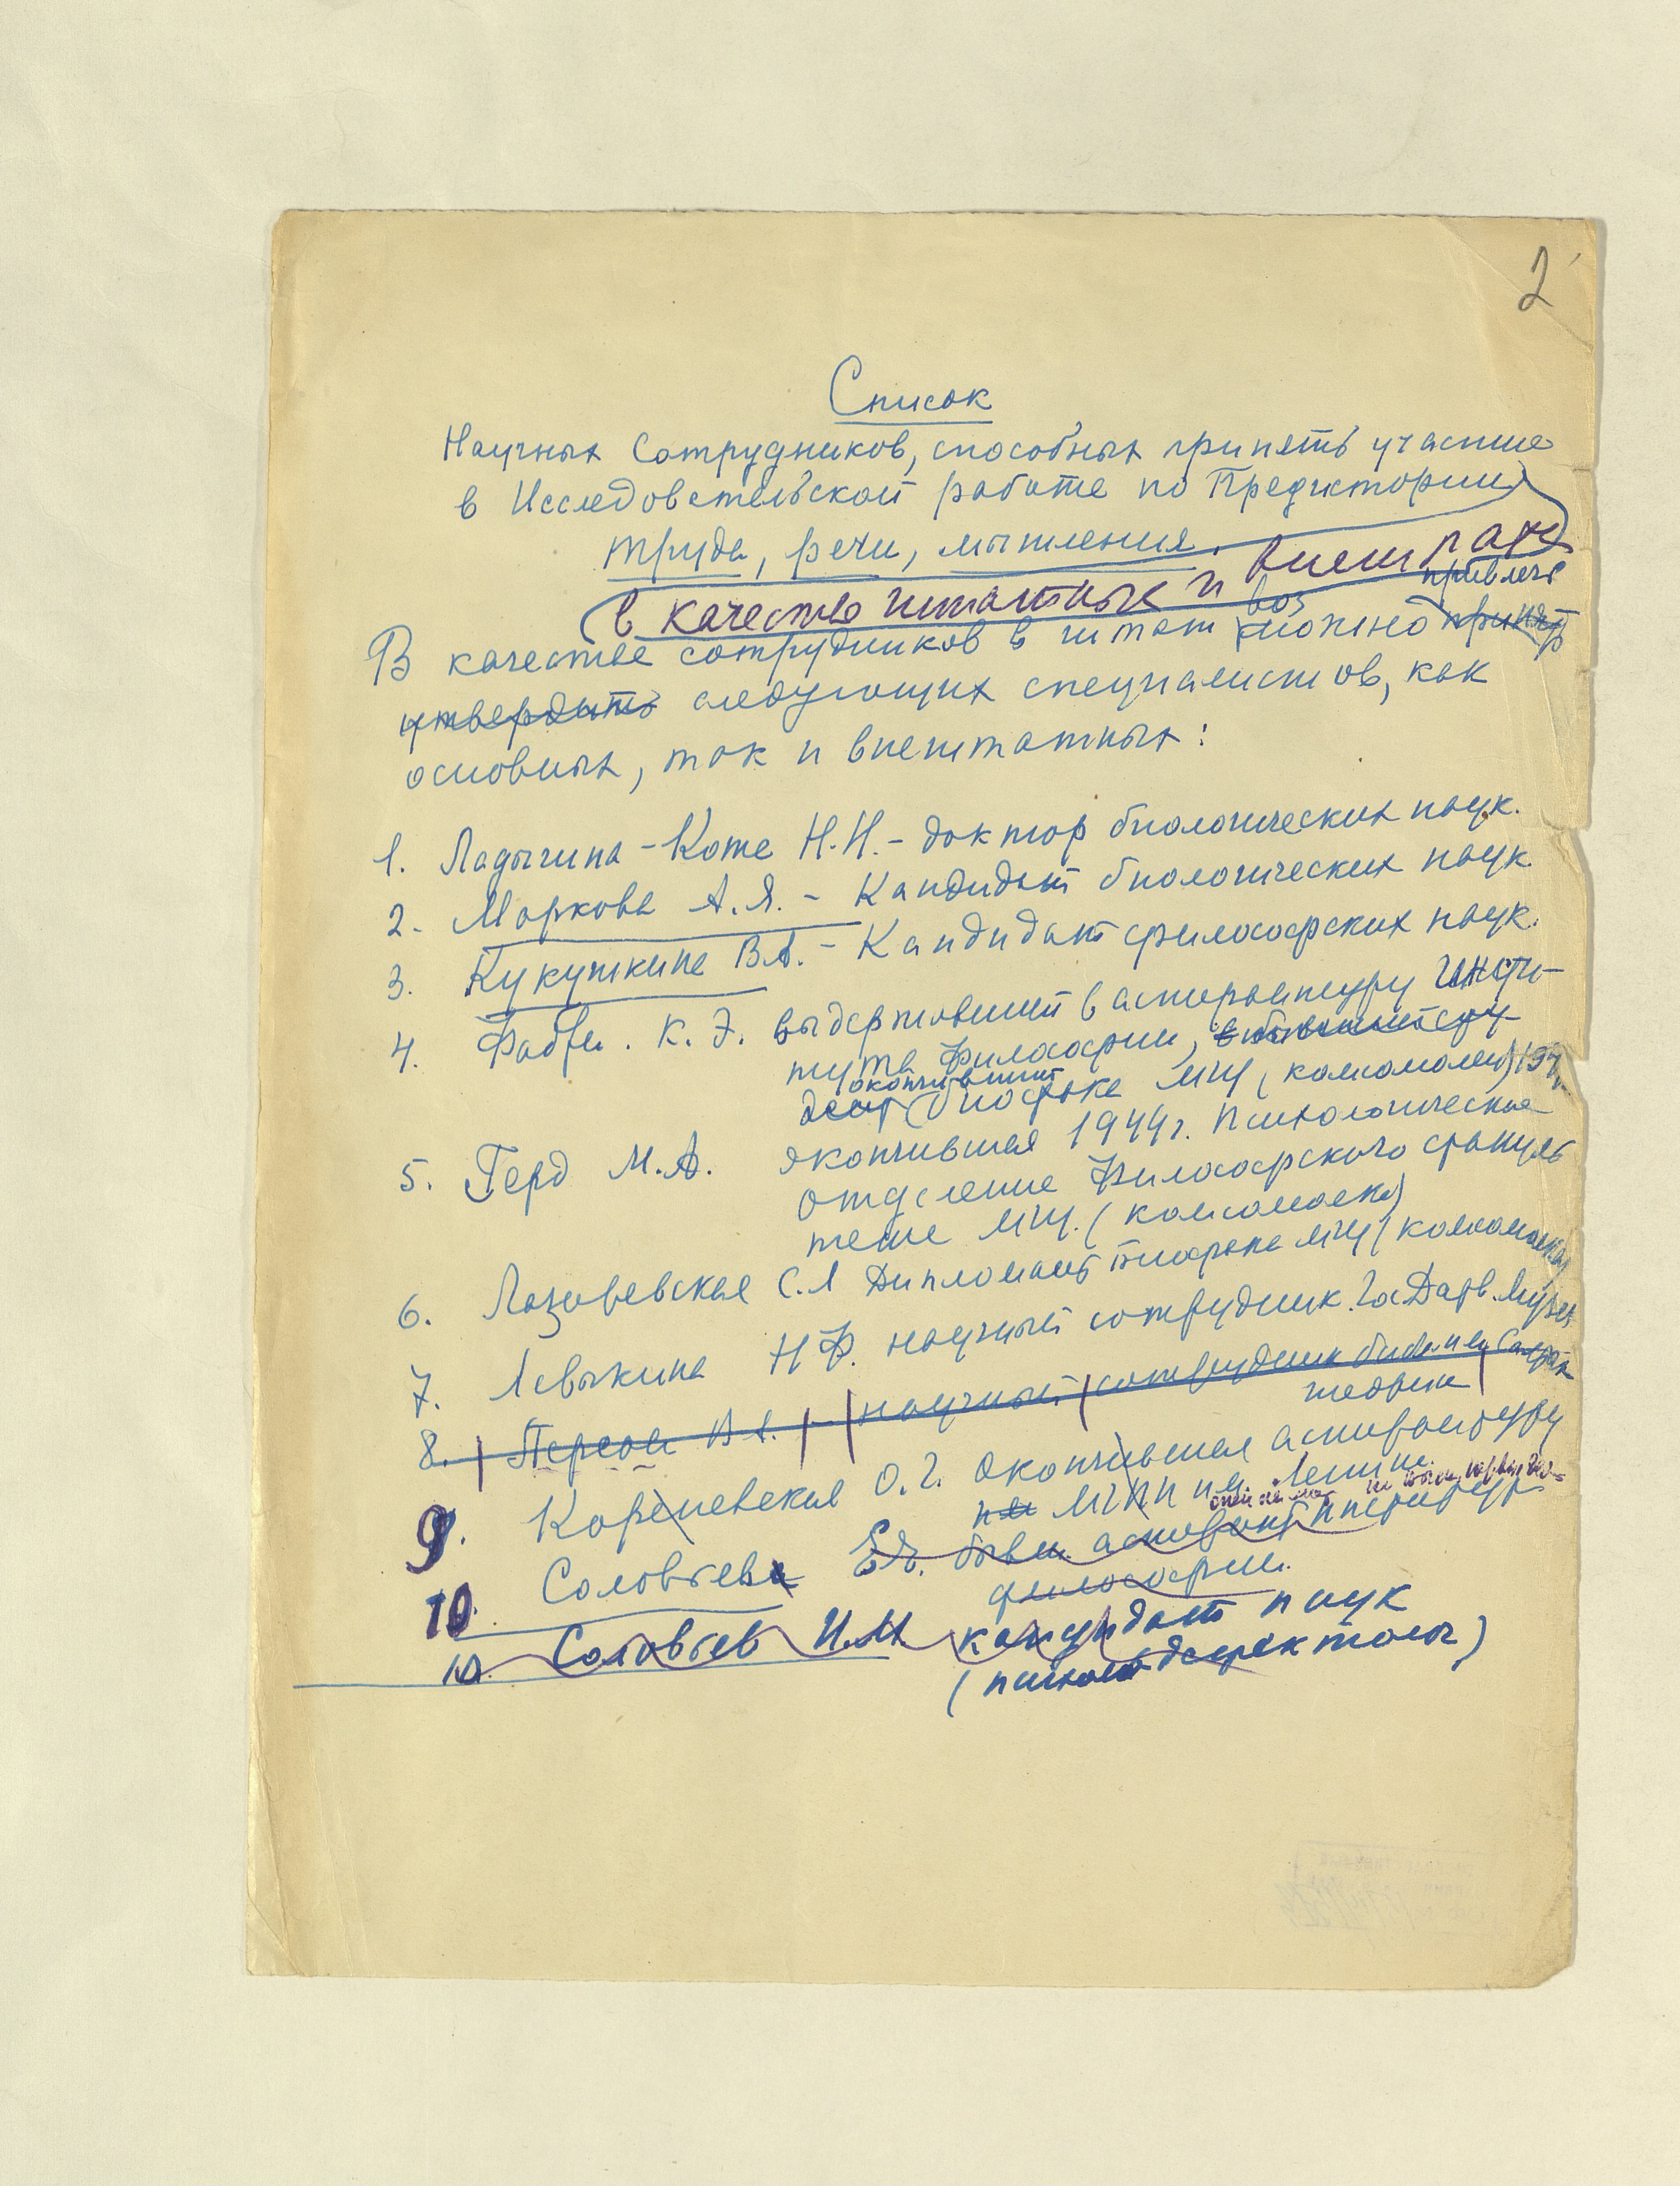 2
Список
Научных Сотрудников, способных принять участие
в Исследовательской работе по Предистории
труда, речи, мышления.
в качестве штатных и внештатн
привлечь
воз
В качестве сотрудников в штат можно принять
утвердить следующих специалистов, как
основных, так и внештатных:
1. Ладыгина-Котс Н.Н. - доктор биологических наук.
2. Маркова А.Я. - Кандидат биологических наук
3. Кукушкина В.А. - Кандидат философских наук.
4. Фабри. К.Э. выдержавший в аспирантуру Инсти-
тута Философии,
окончивший
Биофаке МГУ (комсомолец) 194
5. Герд М.А. окончившая 1944 г. Психологическое
отделение Философского факуль
тета МГУ. (комсомолка)
6. Лазаревская С.Л Дипломант Биофака МГУ (комсомолка)
7. Левыкина Н.Ф. научный сотрудник. Гос Дарв. Музея
8. Персон В.А. - научный сотрудник
9. Кореневская О.Г. Окончившая аспирантуру
МГПИ им Ленина.
10. Соловьева Е.Я. бывш. аспирант Института
философии.
10. Соловьев И.М кандидат наук
(психолог дефектолог)